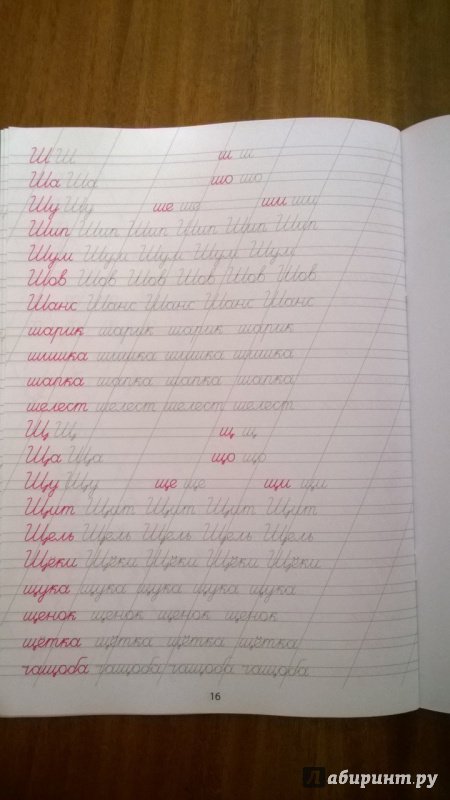 Ш Ш ш ш
Ша Ша шо шо
Шу Шу ше ше ши ши
Шип Шип Шип Шип Шип Шип
Шум Шум Шум Шум Шум
Шов Шов Шов Шов Шов Шов
Шанс Шанс Шанс Шанс Шанс
шарик шарик шарик шарик
шишка шишка шишка шишка
шапка шапка шапка шапка
шелест шелест шелест шелест
Щ Щ щ щ
Ща Ща що що
Щу Щу ще ще щи щи
Щит Щит Щит Щит Щит
Щель Щель Щель Щель Щель
Щёки Щёки Щёки Щёки Щёки
щука щука щука щука щука
щенок щенок щенок щенок
щётка щётка щётка щётка
чащоба чащоба чащоба чащоба
16
Лабиринт.ру